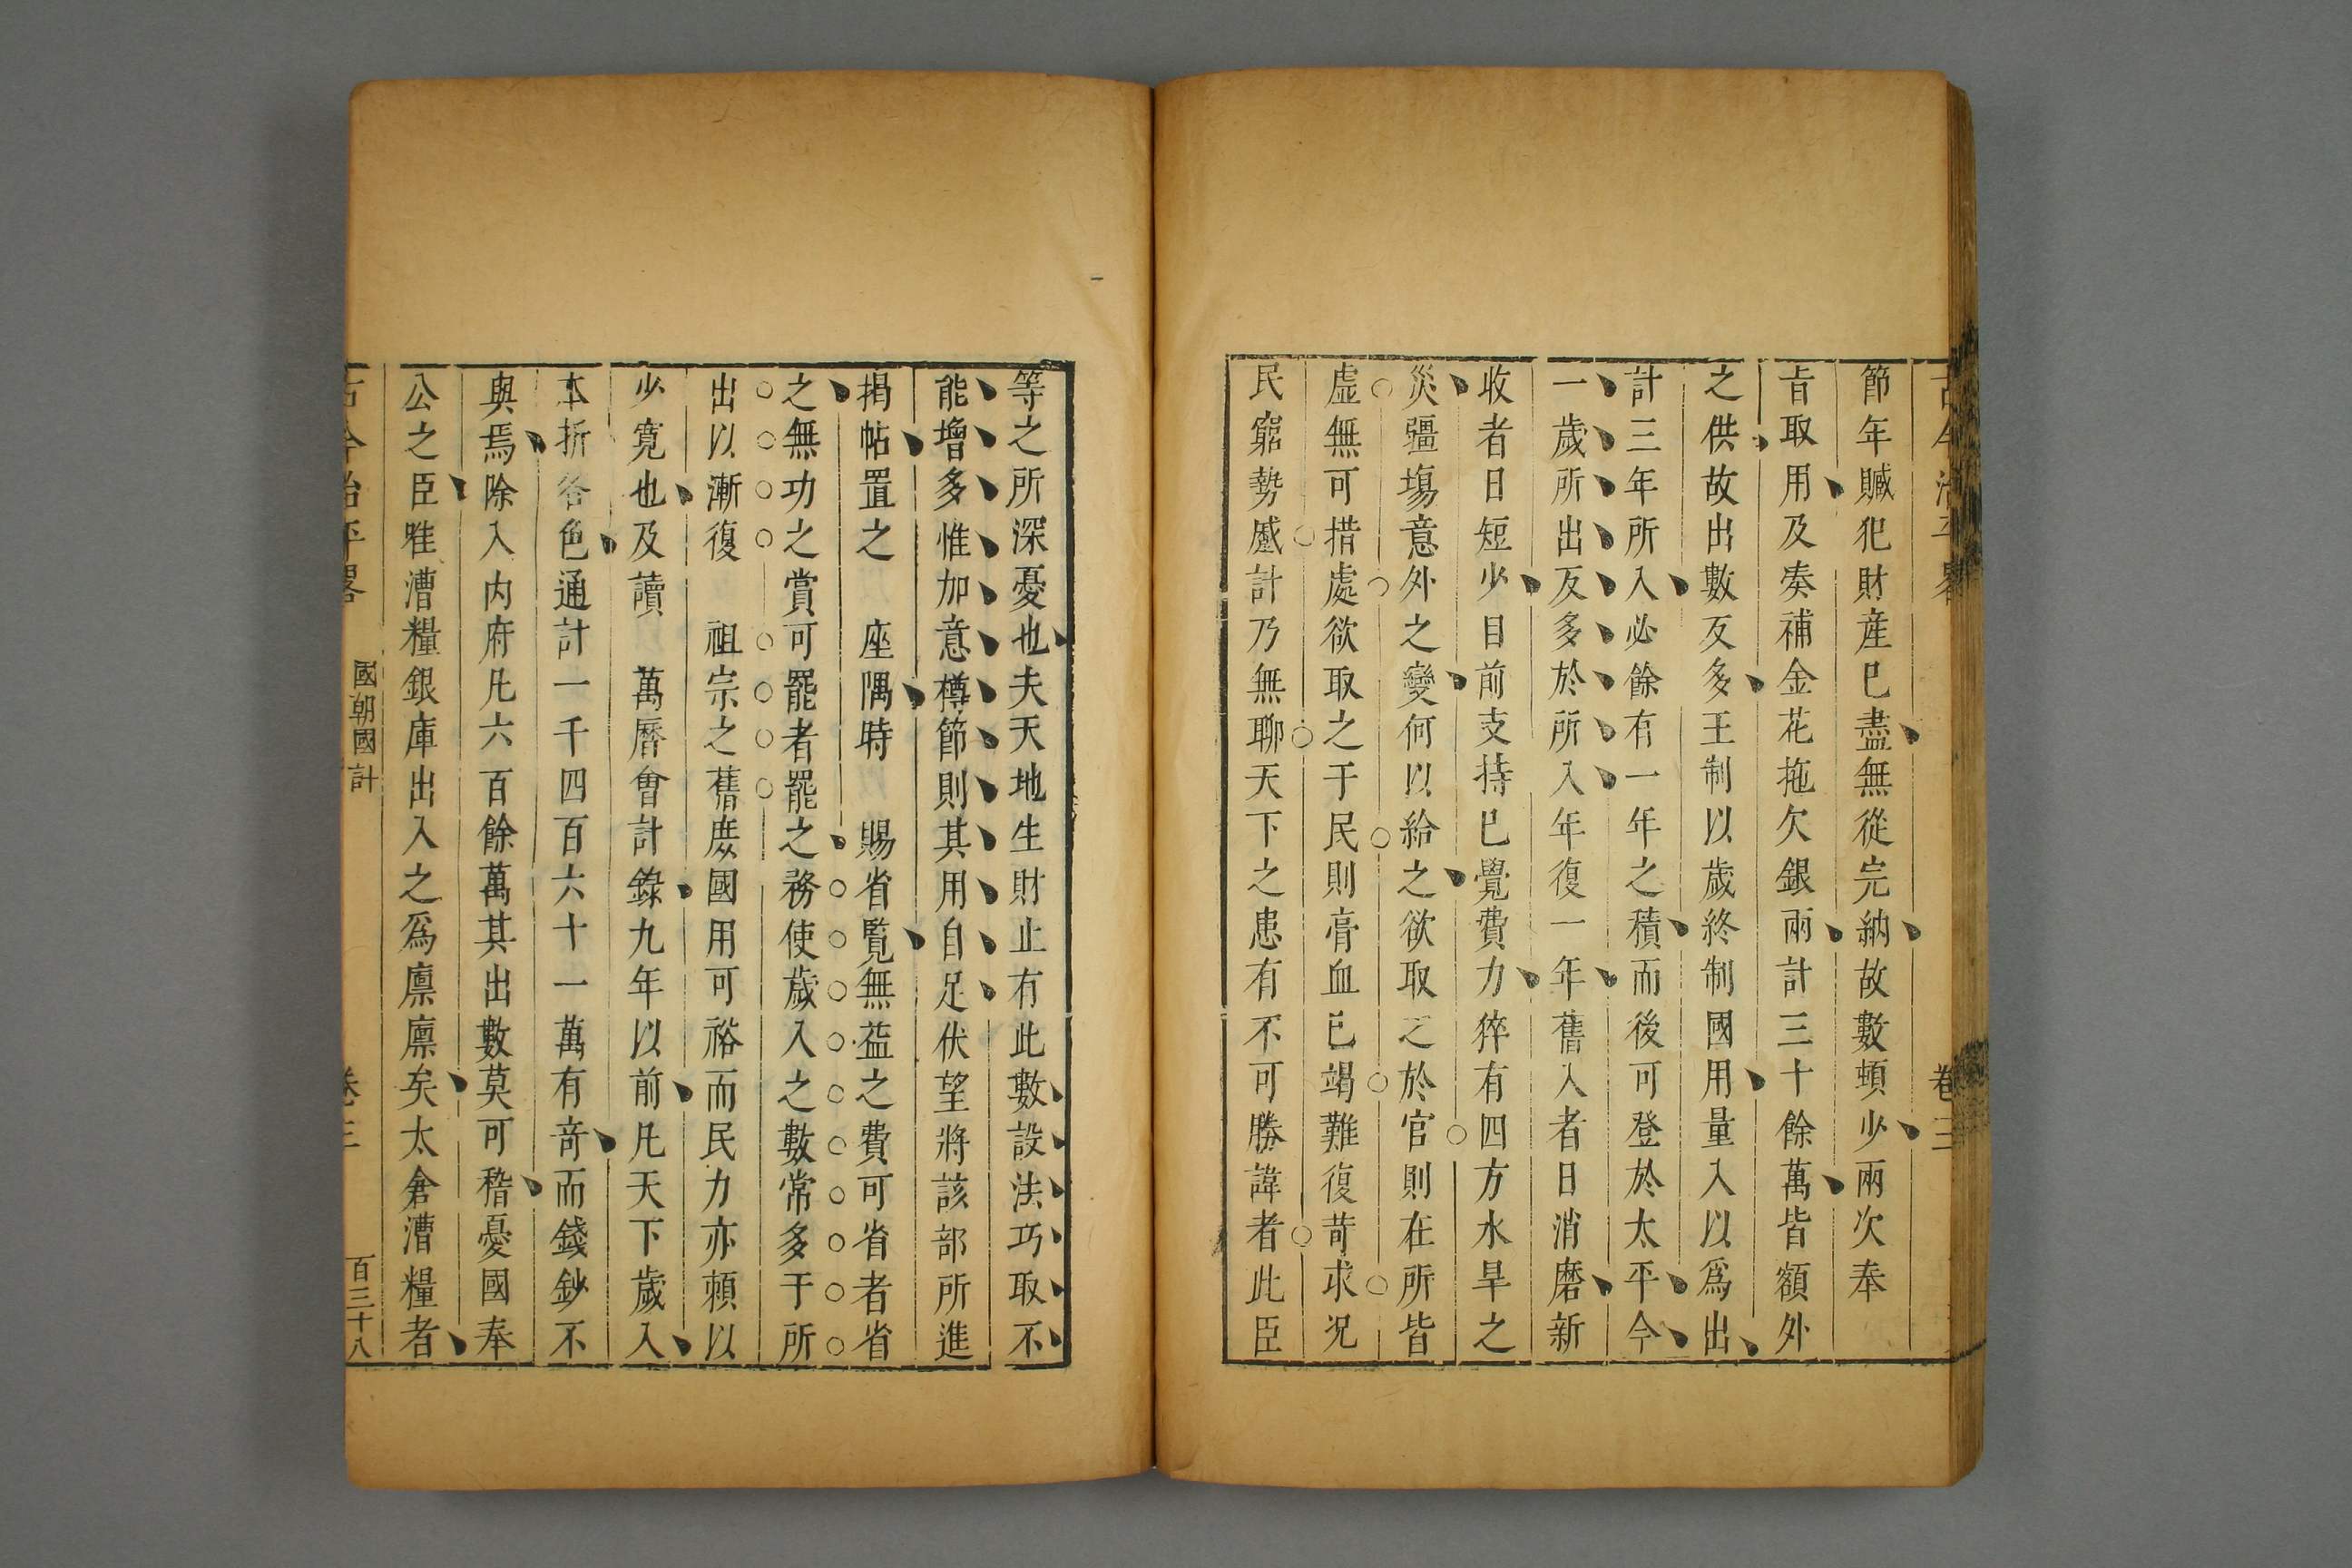 節年贓犯財産已盡無從完納故數頓少兩次奉
旨取用及奏補金花拖欠銀兩計三十餘萬皆額外
之供故出數反多王制以歲終制國用量入以爲出
計三年所入必餘有一年之積而後可登於太平今
一歲所出反多於所入年復一年舊入者日消磨新
收者日短少目前支持已覺費力猝有四方水旱之
災疆塲意外之變何以給之欲取之於官則在所皆
虛無可措處欲取之于民則膏血已竭難復苛求况
民窮勢蹙計乃無聊天下之患有不可勝諱者此臣
等之所深憂也夫天地生財止有此數設法巧取不
能增多惟加意樽節則其用自足伏望將該部所進
揭帖置之　座隅時　賜省覽無益之費可省者省
之無功之賞可罷者罷之務使歲入之數常多于所
出以漸復　祖宗之舊庶國用可裕而民力亦頼以
少寛也及讀　萬曆會計錄九年以前凡天下歲入
本折各色通計一千四百六十一萬有奇而錢鈔不
與焉除入内府凡六百餘萬其出數莫可稽憂國奉
公之臣唯漕糧銀庫出入之爲廪廪矣太倉漕糧者
古今治平畧　國朝國計　卷三　百三十八